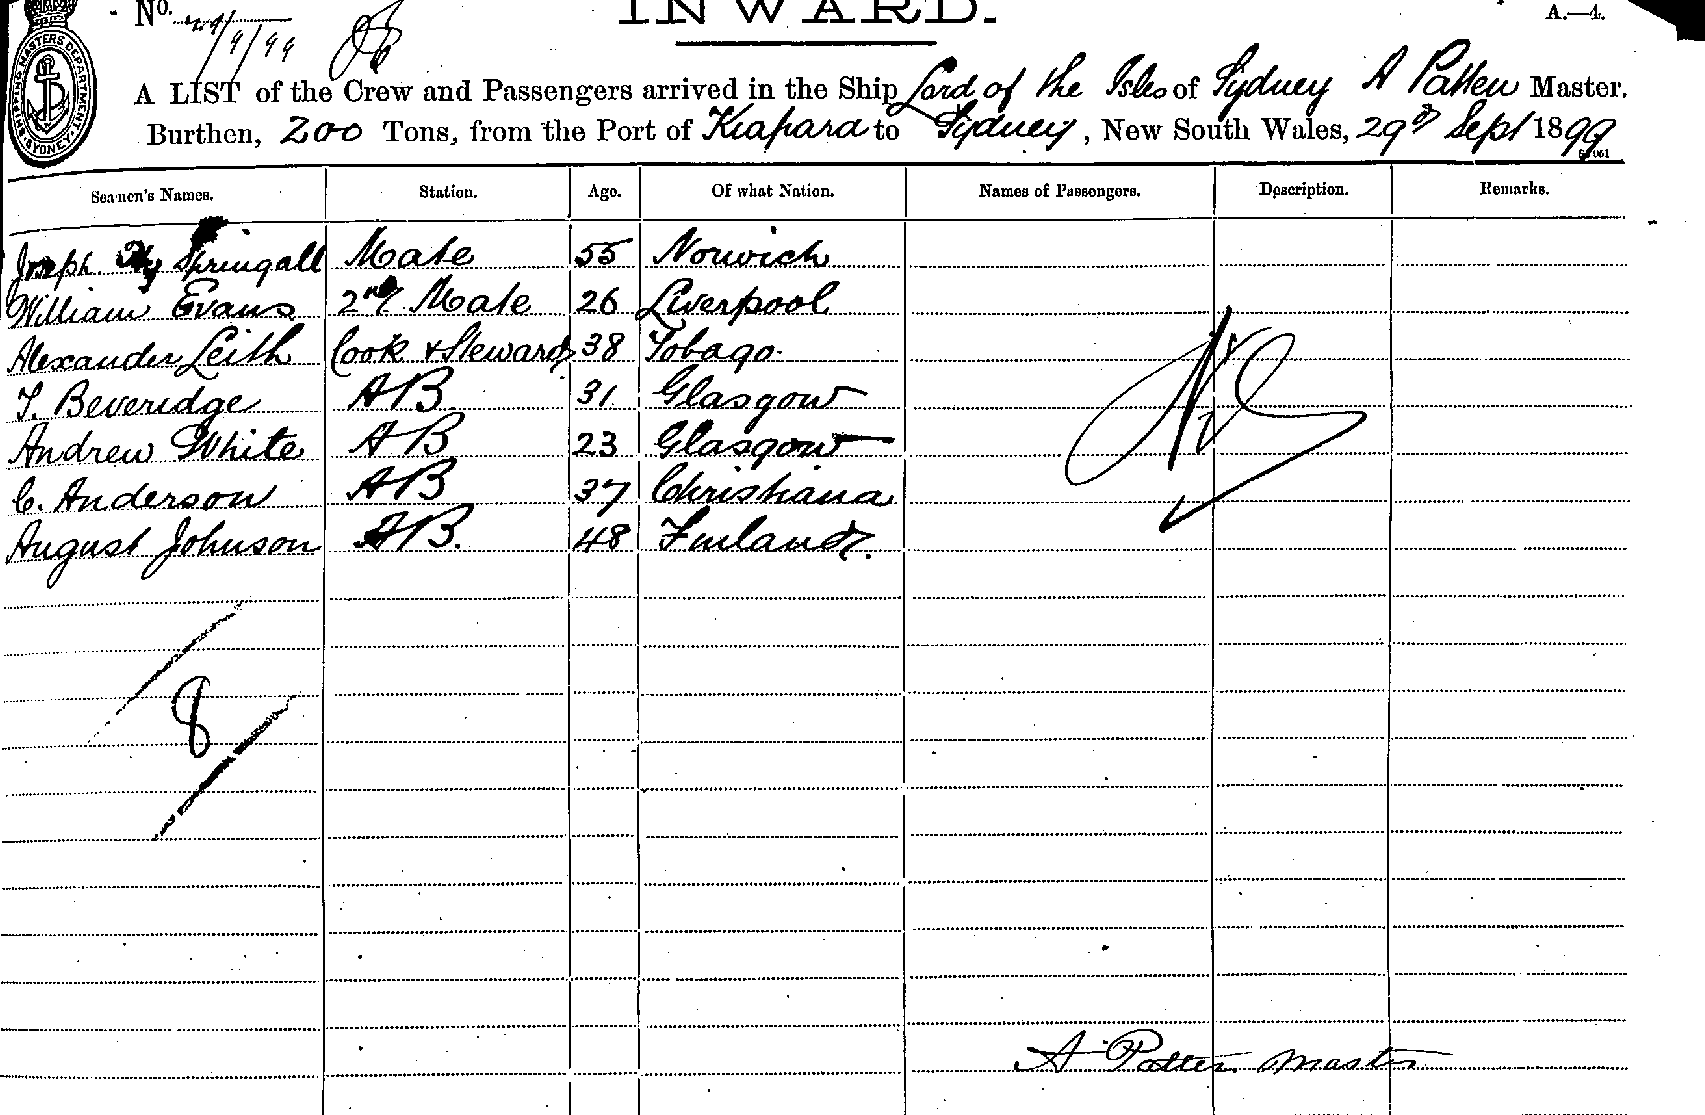 No. 29/9/99
INWARD.
A.—4.
SHIPPING MASTERS DEPARTMENT SYDNEY
A LIST of the Crew and Passengers arrived in the Ship Lord of the Isles of Sydney A Patten Master.
Burthen, 200 Tons, from the Port of Kiapara to Sydney, New South Wales, 29th Sept 1899
Seamen's Names. Station. Age. Of what Nation. Names of Passengers. Description. Remarks.
Joseph Hy Springall Mate 55 Norwich
William Evans 2nd Mate 26 Liverpool
Alexander Leith Cook & Steward 38 Tobago.
T. Beveridge AB 31 Glasgow
Andrew White AB 23 Glasgow
C. Anderson AB 37 Christiana
August Johnson AB. 48 Finland.
Nil
8
A Patten Master